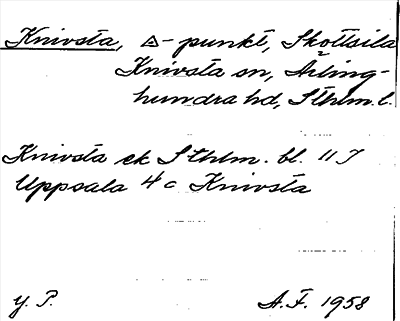 Knivsta, △-punkt, Skottsila
Knivsta sn, Ärling-
hundra hd, Sthlm. l.
Knivsta ek Sthlm. bl. 117
Uppsala 4 c Knivsta
y. P. A.F. 1958